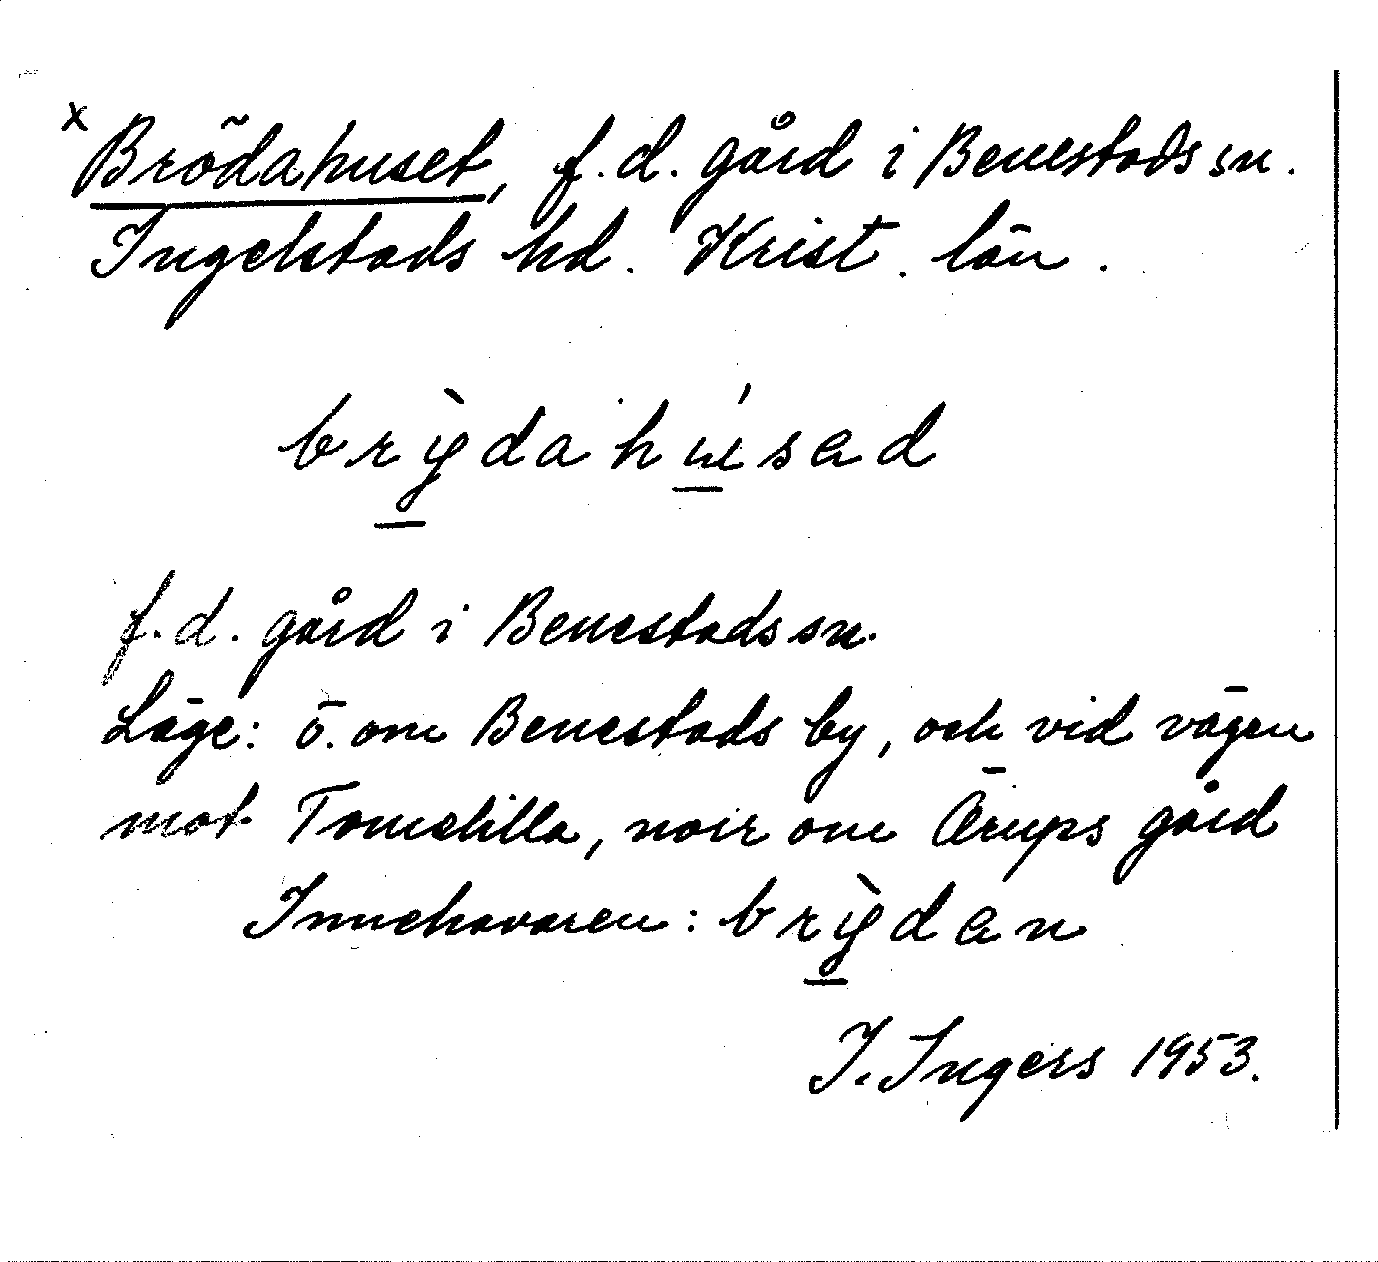 x Brödahuset, f.d. gård i Benestads sn.
Ingelstads hd. Krist. län.
brỳdahúsad
f.d. gård i Benestads sn.
Läge: ö. om Benestads by, och vid vägen
mot Tomelilla, norr om Ärups gård
Innehavaren: brỳdan
I. Ingers 1953.